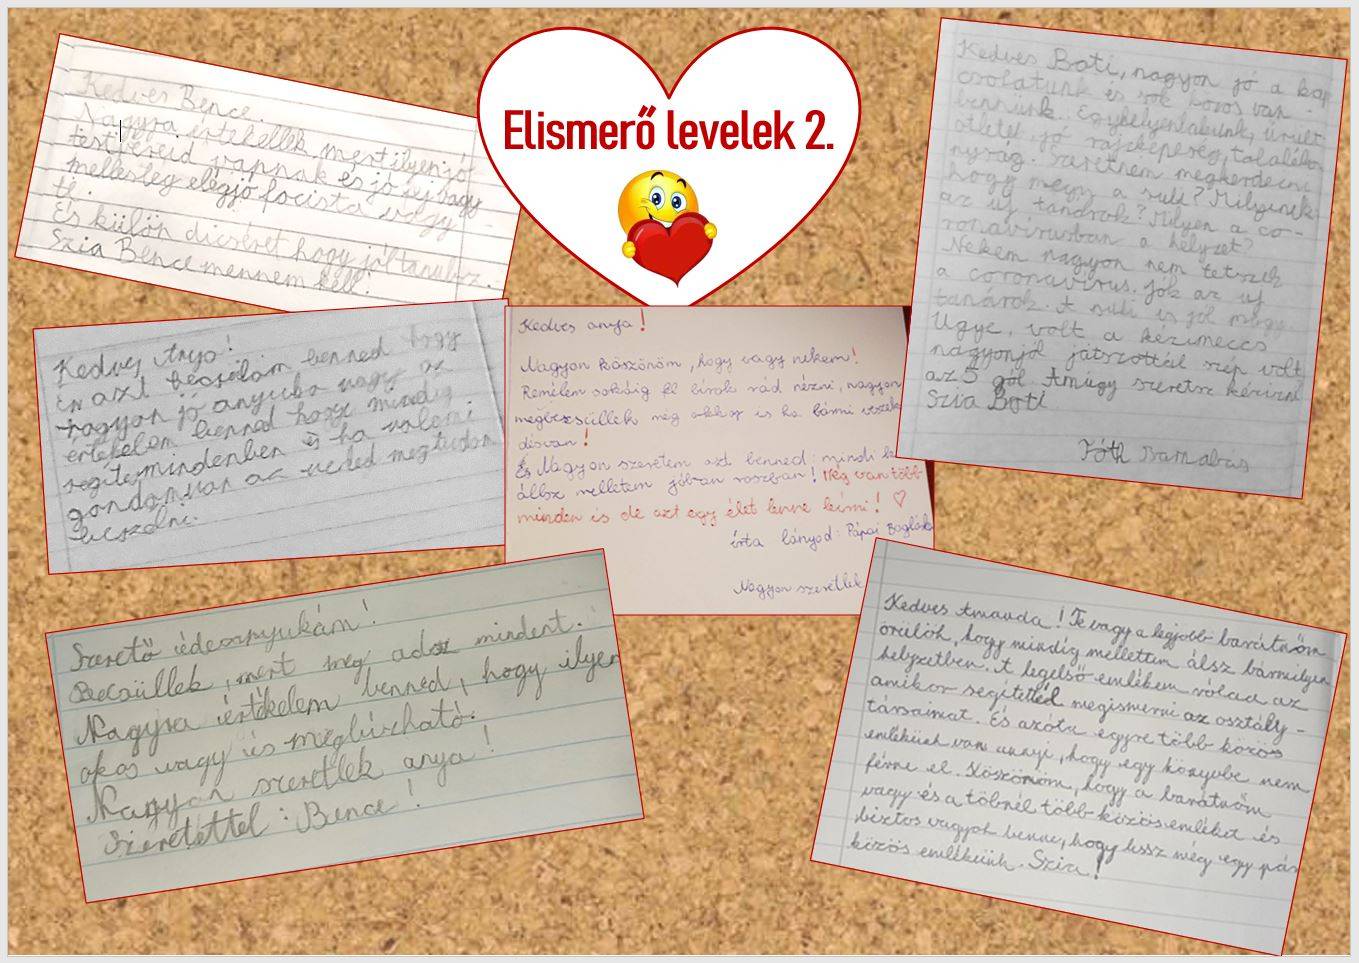 Elismerő levelek 2.
Kedves Bence.
Nagyra értékellek mert ilyen jó
testvéreid vannak és jó fej vagy
mellesleg elég jó focista vagy
te.
És külön dicséret hogy jól tanulsz.
Szia Bence mennem kell!
Kedves Anyo!
Én azt becsülöm benned hogy
nagyon jó anyuka vagy az
értékelem benned hogy mindig
segítesz mindenben és ha valami
gondom van az veled megtudom
beszélni.
Kedves anya!
Nagyon köszönöm, hogy vagy nekem!
Remélem sokáig fel bírok rád nézni, nagyon
megbecsüllek még akkor is ha bármi
És Nagyon szeretem azt benned: mindi
állsz melletem jóban rosszban! Még van több
minden is de azt egy élet lenne leírni! ♡
írta lányod: Pápai Boglár
Nagyon szeretlek
Szerető édesanyukám!
Becsüllek, mert meg adsz mindent.
Nagyra értékelem benned, hogy ilyen
okos vagy és megbízható.
Nagyon szeretlek anya!
Szeretettel: Bence!
Kedves Boti, nagyon jó a kap
csolatunk és sok közös van -
bennünk. Egy helyen lakunk, őrült
ötletek, jó rajzképeség, találéko
nyság. Szeretném megkérdezni
hogy megy a suli? Milyenek
az új tanárok? Milyen a co-
ronavírusban a helyzet?
Nekem nagyon nem tetszik
a coronavírus, jók az új
tanárok. A suli is jól megy
Ugye, volt a kézimeccs
nagyon jól játszottál szép volt
az 5 gól. Amúgy szeretsz kézizni
Szia Boti
Tóth Barnabás
Kedves Amanda! Te vagy a legjobb barátnőm
örülök, hogy mindíg mellettem álsz bármilyen
helyzetben. A legelső emlékem rólad az
amikor segítettél megismerni az osztály-
társaimat. És azóta egyre több közös
emlékünk van annyi, hogy egy könyvbe nem
férne el. Köszönöm, hogy a barátnőm
vagy és a többnél több közös emléket és
biztos vagyok benne, hogy lessz még egy pár
közös emlékünk. Szia!